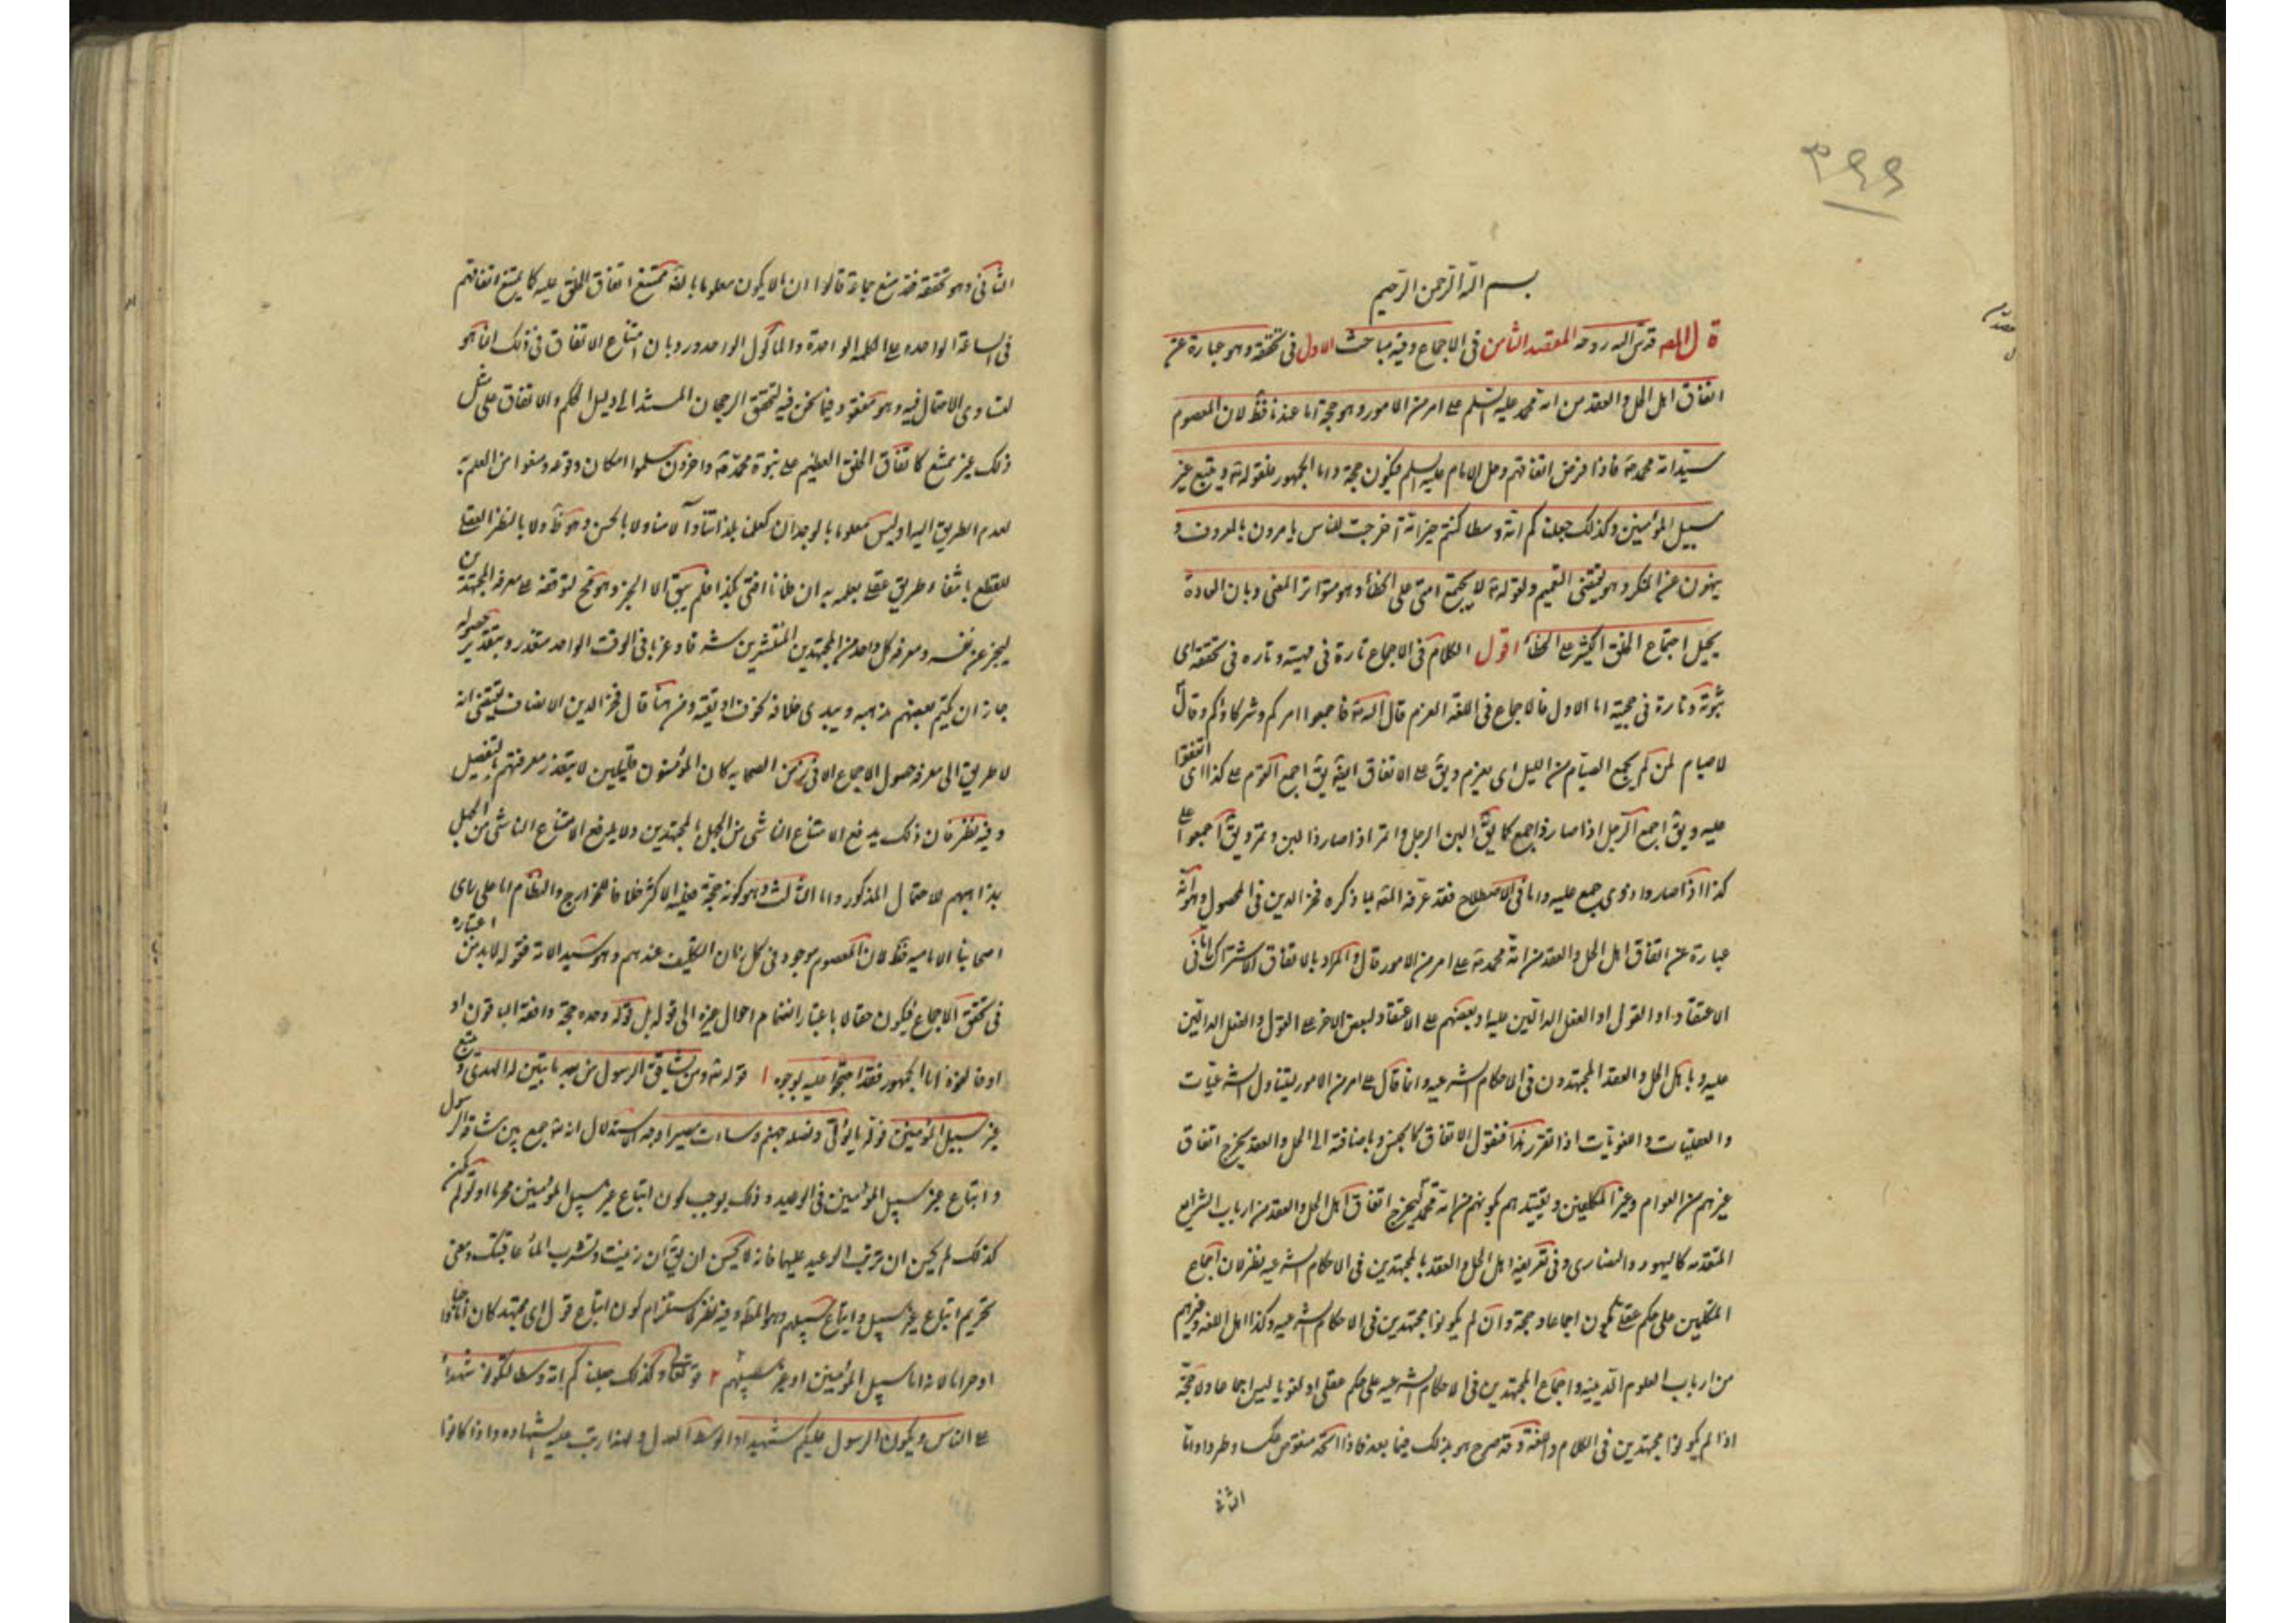 ٣٩٩
بسم الله الرحمن الرحيم
قال المصـ قدس الله روحه المقصد الثامن في الاجماع وفيه مباحث الاول في تحققه وهو عبارة عن
اتفاق اهل الحل والعقد من امة محمد عليه السلم على امر من الامور وهو حجة اما عندنا فظ لان المعصوم
سيد امة محمد صـ فاذا فرض اتفاقهم دخل الامام عليه السلم فيكون حجة واما الجمهور فلقوله تع ويتبع غير
سبيل المؤمنين وكذلك جعلناكم امة وسطا كنتم خير امة اخرجت للناس يامرون بالمعروف و
ينهون عن المنكر وهو يقتضى التعميم ولقوله ع لا يجتمع امتى على الخطأ وهو متواتر المعنى وبان العادة
يحيل اجتماع الخلق الكثير على الخطأ اقول الكلام في الاجماع تارة في مهيته وتاره في تحققه اى
ثبوته وتارة في حجيته اما الاول فالاجماع في اللغة العزم قال الله تع فاجمعوا امركم وشركاءكم وقال ع
لا صيام لمن لم يجمع الصيام من الليل اى يعزم ويق على الاتفاق ايضا يق اجمع القوم على كذا اى اتفقوا
عليه ويق اجمع الرجل اذا صار ذا جمع كما يق البن الرجل واتمر اذا صار ذا لبن وتمر ويق اجمعوا على
كذا اذا صاروا ذوى جمع عليه واما في الاصطلاح فقد عرفه المصـ بما ذكره فخر الدين في المحصول وهو انه
عبارة عن اتفاق اهل الحل والعقد من امة محمد صـ على امر من الامور قال والمراد بالاتفاق الاشتراك اما في
الاعتقاد او القول او الفعل الدالين عليه او بعضهم على الاعتقاد وبعض الاخر على القول والفعل الدالين
عليه وباهل الحل والعقد المجتهدون في الاحكام الشرعيه وانما قال على امر من الامور ليتناول الشرعيات
والعقليات واللغويات اذا تقرر هذا فنقول الاتفاق كالجنس وباضافته الى الحل والعقد يخرج اتفاق
غيرهم من العوام وغير المكلفين وبتقييدهم بكونهم من امة محمد يخرج اتفاق اهل الحل والعقد من ارباب الشرايع
المتقدمه كاليهود والنصارى وفي تعريفه اهل الحل والعقد بالمجتهدين في الاحكام الشرعيه نظر لان اجماع
المتكلمين على حكم عقلى يكون اجماعا وحجة وان لم يكونوا مجتهدين في الاحكام الشرعيه وكذا اهل اللغه وغيرهم
من ارباب العلوم الدينيه واجماع المجتهدين في الاحكام الشرعيه على حكم عقلى او لغوى ليس اجماعا ولا حجة
اذا لم يكونوا مجتهدين في الكلام واللغة وقد صرح هو بذلك فيما بعد فاذا الحد منقوض عكسا وطردا واما
الثانى
الثانى وهو تحققه فقد منع جماعة قالوا ان ما لا يكون معلوما بالضـ يمتنع اتفاق الخلق عليه كما يمتنع اتفاقهم
في الساعة الواحده على الكلمه الواحدة والمأكول الواحد ورد بان امتناع الاتفاق في ذلك انما هو
لتساوى الاحتمال فيه وهو مفقود فيما نحن فيه لتحقق الرجحان المستند الى دليل الحكم والاتفاق على مثل
ذلك غير ممتنع كاتفاق الخلق العظيم على نبوة محمد صـ واخرون سلموا امكان وقوعه ومنعوا من العلم به
لعدم الطريق اليه اذ ليس معلوما بالوجدان كعلمنا بلذاتنا وآلامنا ولا بالحس وهو ظ ولا بالنظر العقلى
للقطع بانتفاء طريق عقلى يعلم به ان فلانا افتى بكذا فلم يبق الا الخبر وهو مح لتوقفه على معرفة المجتهدين
ليخبر عن نفسه ومعرفة كل واحد من المجتهدين المنتشرين شرقا وغربا في الوقت الواحد متعذر وبتقدير حصوله
جاز ان يكتم بعضهم مذهبه ويبدى خلافه لخوف او تقية ومن هنا قال فخر الدين الانصاف يقتضى انه
لا طريق الى معرفة حصول الاجماع الا في زمن الصحابه كان المؤمنون قليلين لا يتعذر معرفتهم بالتفصيل
وفيه نظر فان ذلك يدفع الامتناع الناشى من الجهل بالمجتهدين ولا يرفع الامتناع الناشى من الجهل
بمذاهبهم للاحتمال المذكور واما الثالث وهو كونه حجة فعليه الاكثر خلافا للخوارج والنظام اما على راى
اصحابنا الاماميه فظ لان المعصوم موجود في كل زمان التكليف عندهم وهو سيد الامة فقوله لا بد من اعتباره
في تحقق الاجماع فيكون حقا لا باعتبار انضمام اقوال غيره الى قوله بل قوله وحده حجة وافقه الباقون او
او خالفوه اما الجمهور فقد احتجوا عليه بوجوه ا قوله تع ومن يشاقق الرسول من بعد ما تبين له الهدى ويتبع
غير سبيل المؤمنين نوله ما تولى ونصله جهنم وساءت مصيرا وجه الاستدلال انه تع جمع بين مشاقة الرسول
واتباع غير سبيل المؤمنين في الوعيد وذلك يوجب كون اتباع غير سبيل المؤمنين محرما اذ لو لم يكن
كذلك لم يحسن ان ترتب الوعيد عليهما فانه لا يحسن ان يق ان زنيت وشربت الماء عاقبتك ومعنى
تحريم اتباع غير سبيلهم وجوب اتباع سبيلهم وهو المط وفيه نظر لاستلزام كون اتباع قول اى مجتهد كان اما واجبا
او حراما لانه اما سبيل المؤمنين او غير سبيلهم ٢ قوله تعالى وكذلك جعلناكم امة وسطا لتكونوا شهداء
على الناس ويكون الرسول عليكم شهيدا والوسط العدل ولهذا رتب عليه الشهاده واذا كانوا